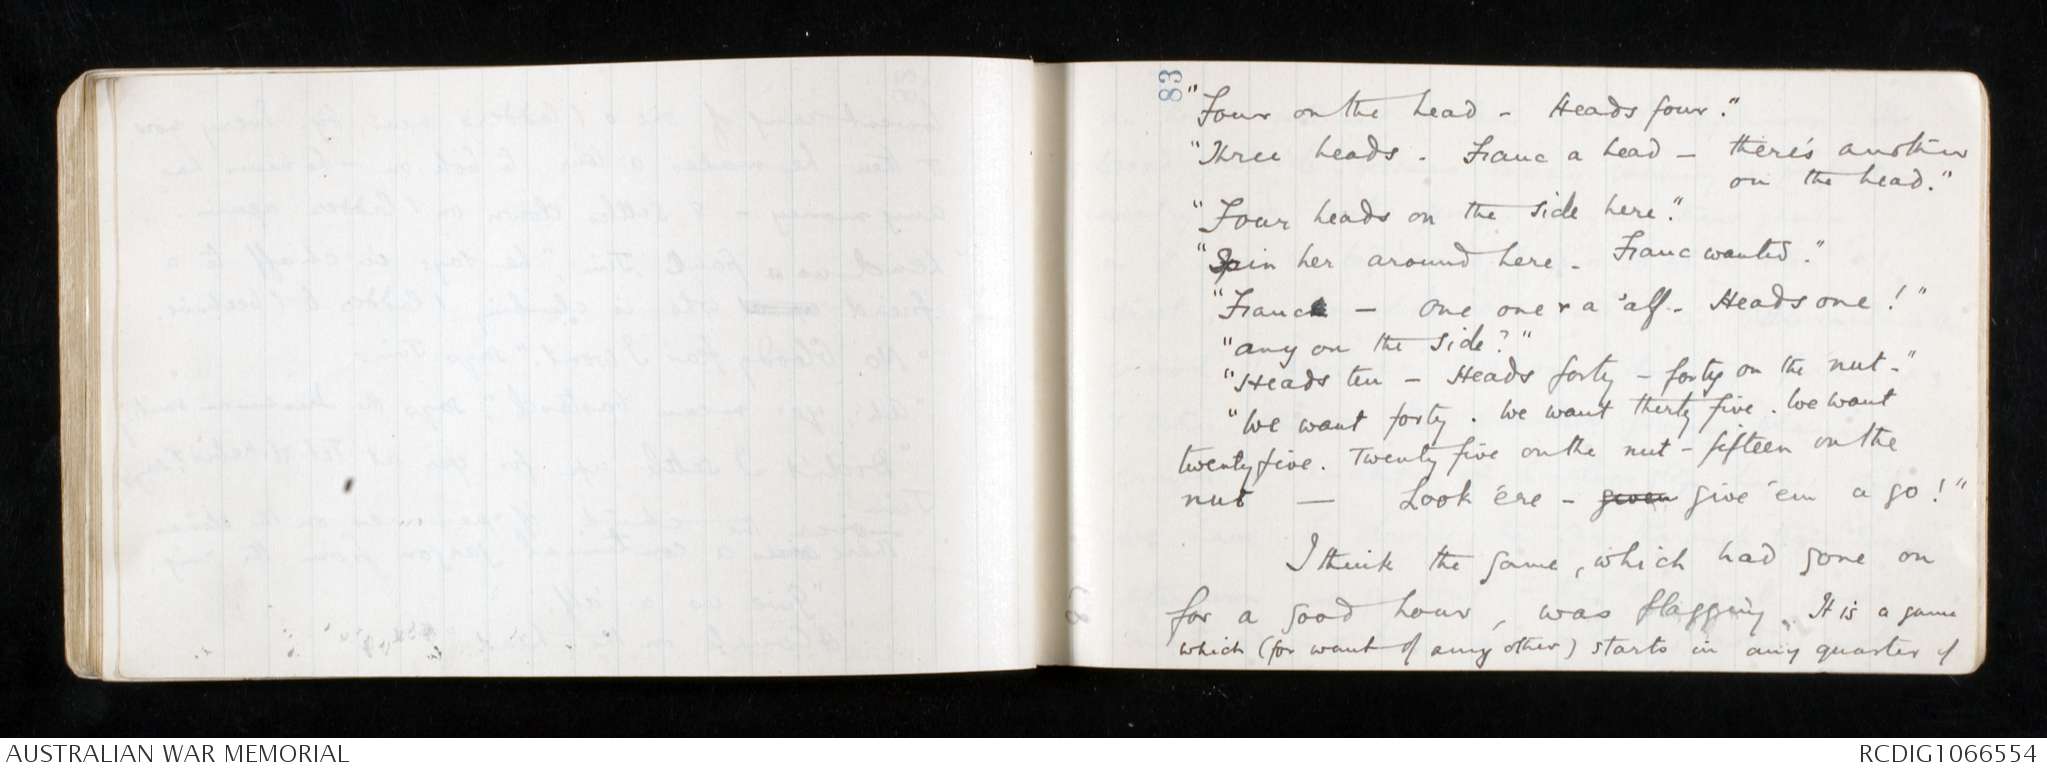 83
"Four on the head - Heads four."
"Three heads - Franc a head - there's another
on the head."
"Four heads on the side here."
"Spin her around here - Franc wanted."
"Franc - one one & a 'alf - Heads one!"
"any on the side?"
"Heads ten - Heads forty - forty on the nut -"
"We want forty. We want thirty five. We want
twenty five. Twenty five on the nut - fifteen on the
nut - Look 'ere - given give 'em a go!"
I think the game, which had gone on
for a good hour, was flagging. It is a game
which (for want of any other) starts in any quarter of
AUSTRALIAN WAR MEMORIAL
RCDIG1066554